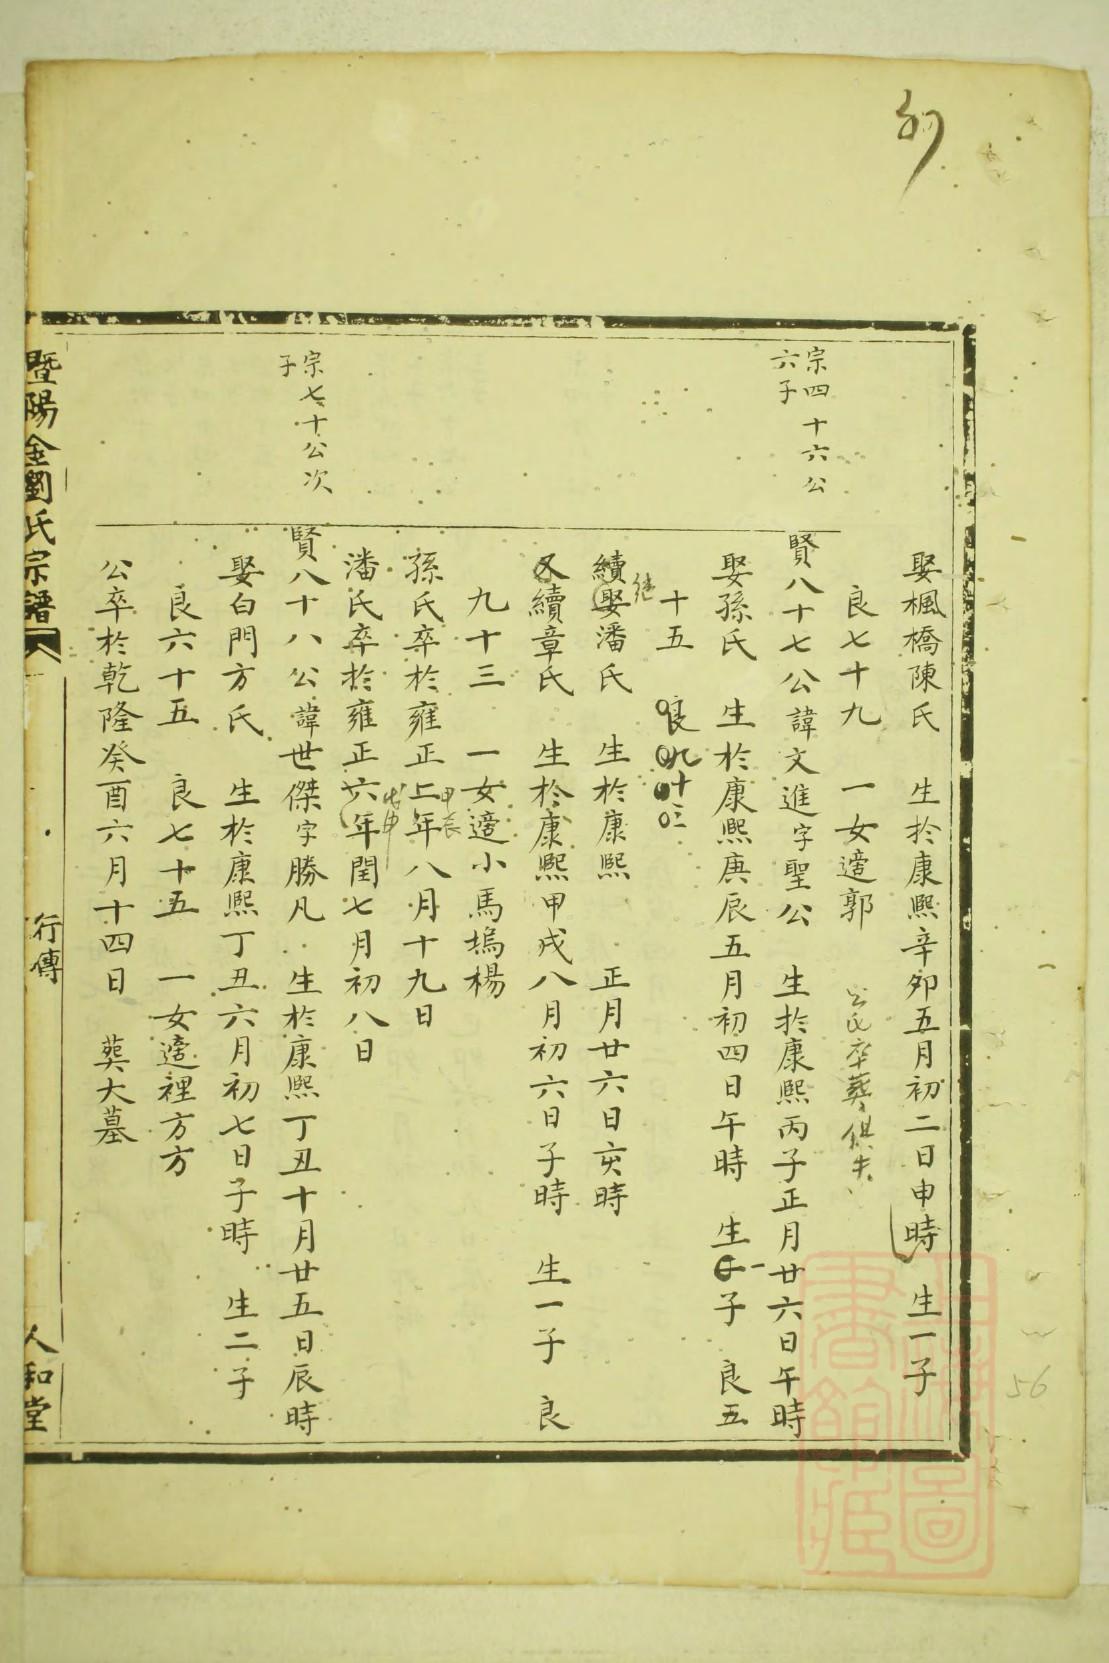 娶楓橋陳氏　生於康熙辛卯五月初二日申時　生一子
良七十九　一女適郭　公氏卒葬俱失
宗四十六公
六子
賢八十七公諱文進字聖公　生於康熙丙子正月廿六日午時
娶孫氏　生於康熙庚辰五月初四日午時　生一子　良五
十五　良九十三
續娶潘氏　生於康熙　正月廿六日亥時
継
又續章氏　生於康熙甲戌八月初六日子時　生一子　良
九十三　一女適小馬塢楊
孫氏卒於雍正二年八月十九日
甲辰
潘氏卒於雍正六年閏七月初八日
戊申
宗七十公次
子
賢八十八公諱世傑字勝凡　生於康熙丁丑十月廿五日辰時
娶白門方氏　生於康熙丁丑六月初七日子時　生二子
良六十五　良七十五　一女適裡方方
公卒於乾隆癸酉六月十四日　葬大墓
暨陽金劉氏宗譜　行傳　人和堂
56